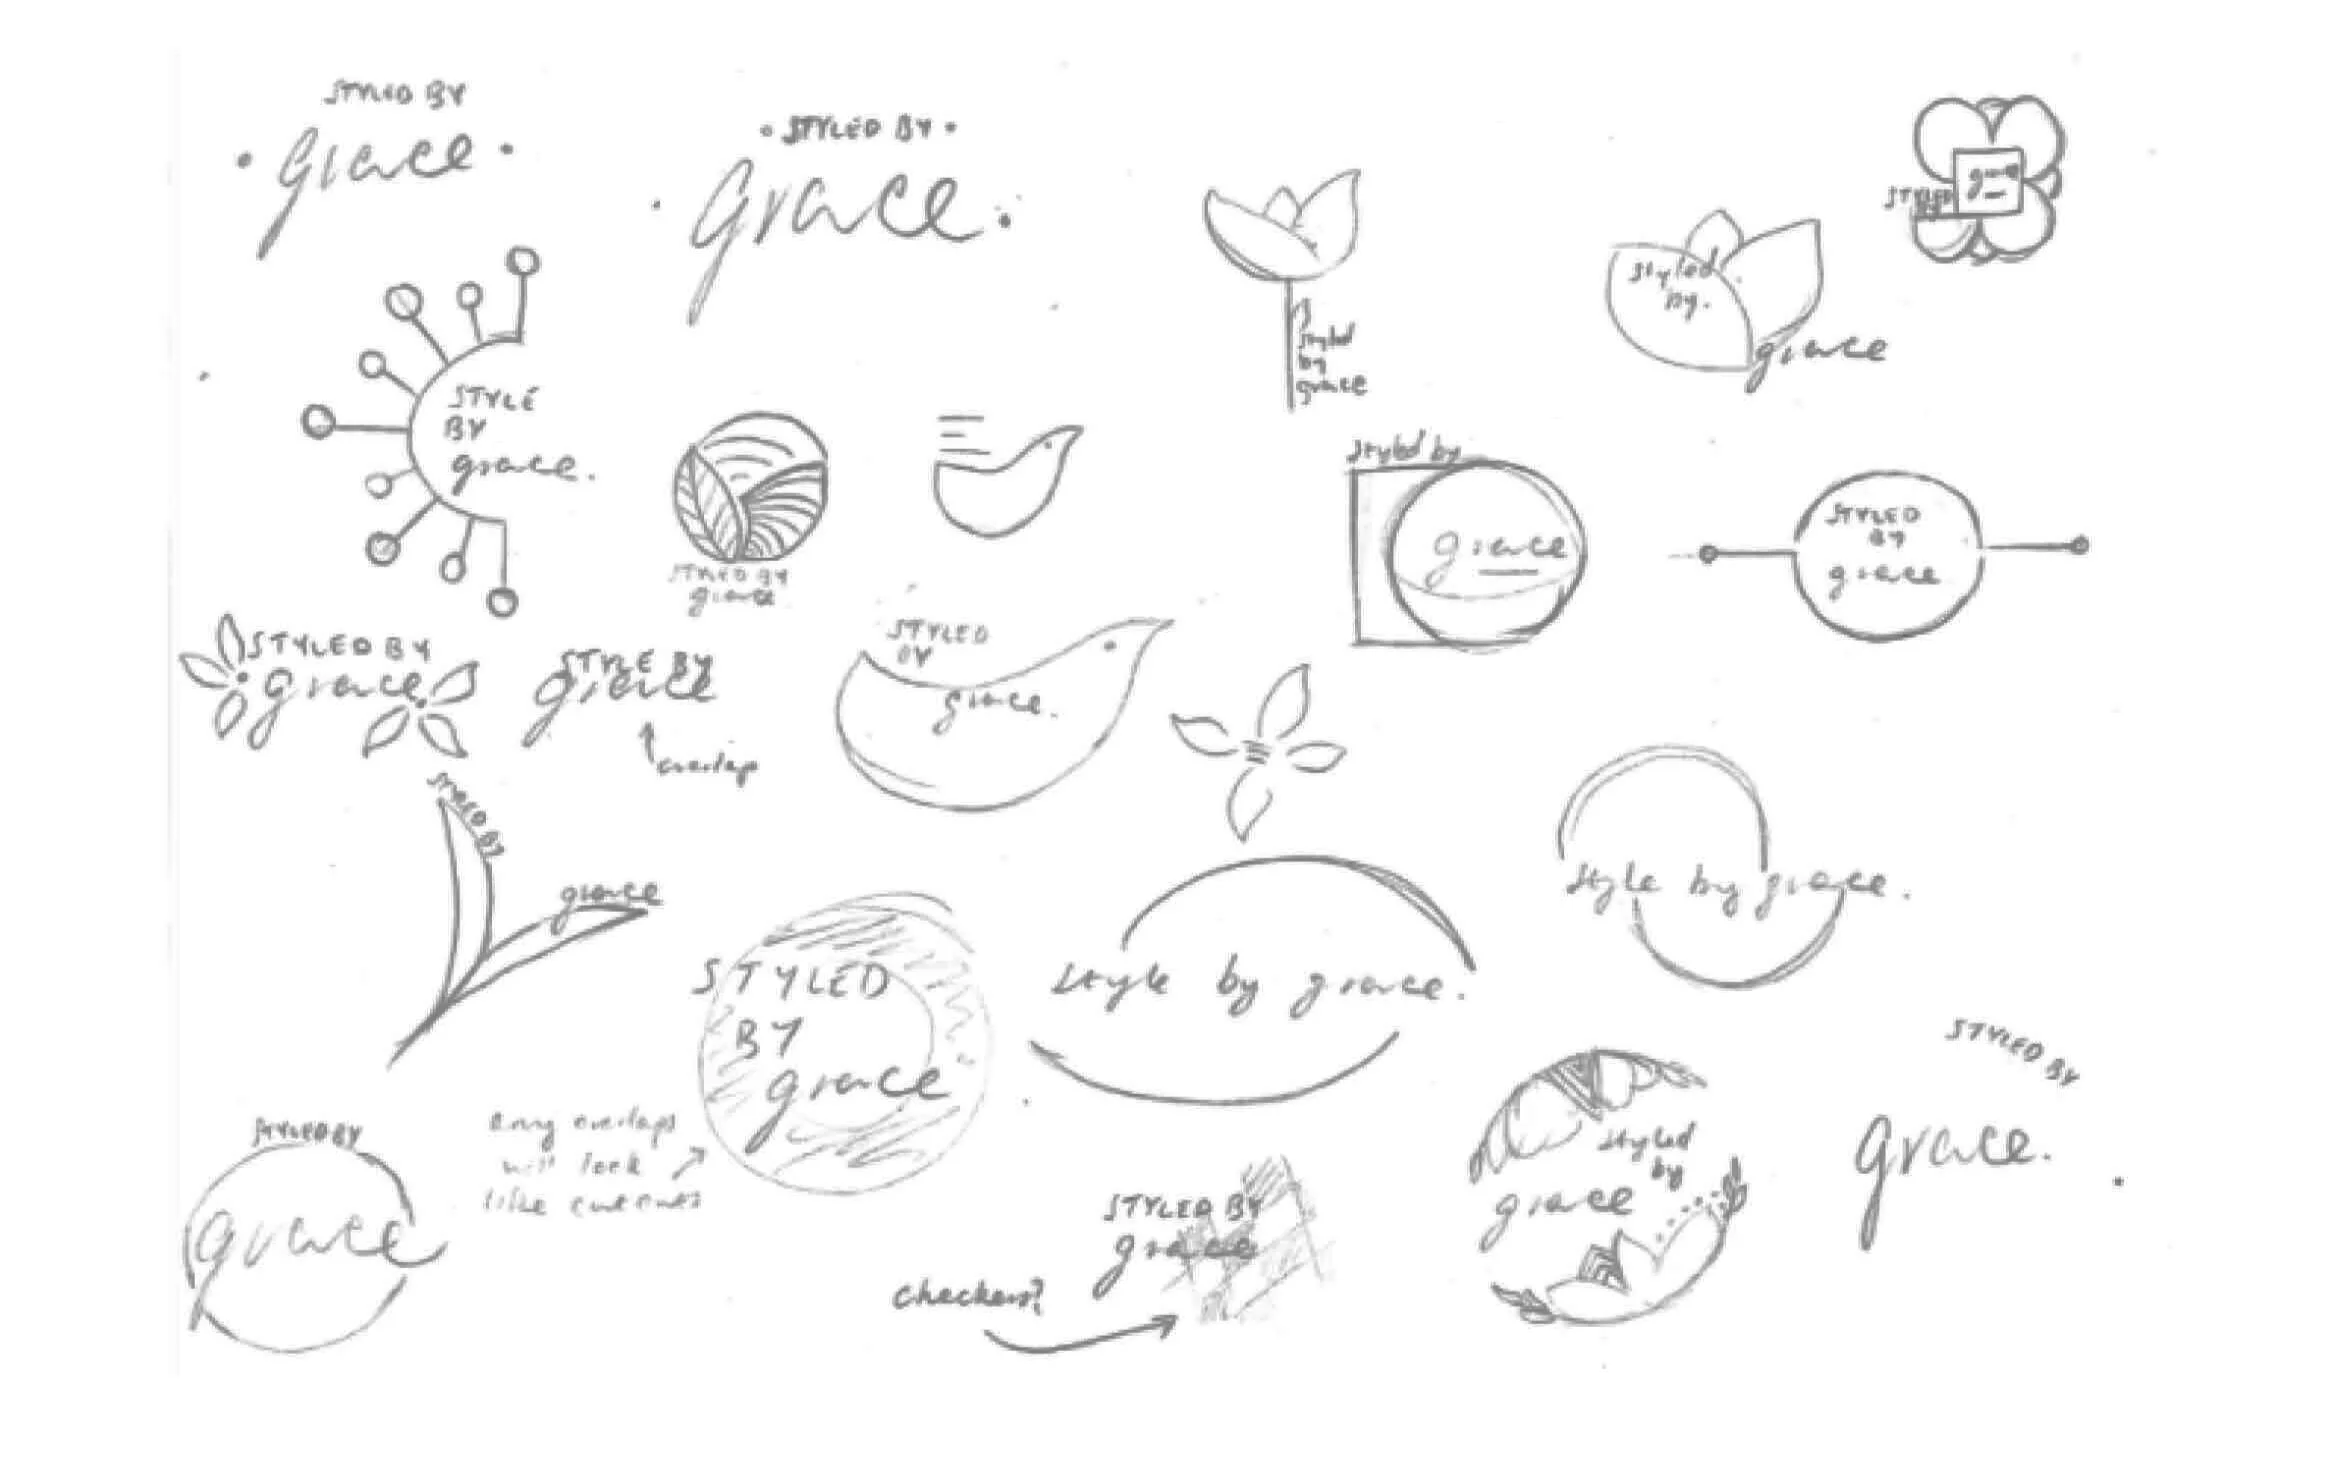 STYLED BY
grace
STYLED BY
grace.
STYLED
BY
grace
styled
by
grace
styled
by.
grace
STYLE
BY
grace.
STYLED BY
grace
styled by
grace
STYLED
BY
grace
STYLED BY
grace
STYLE BY
grace
overlap
STYLED
BY
grace.
STYLED BY
grace
STYLED
BY
grace
style by grace.
style by grace.
STYLED BY
grace
any overlaps
will look
like cutouts
STYLED BY
grace
checkers?
styled
by
grace
STYLED BY
grace.